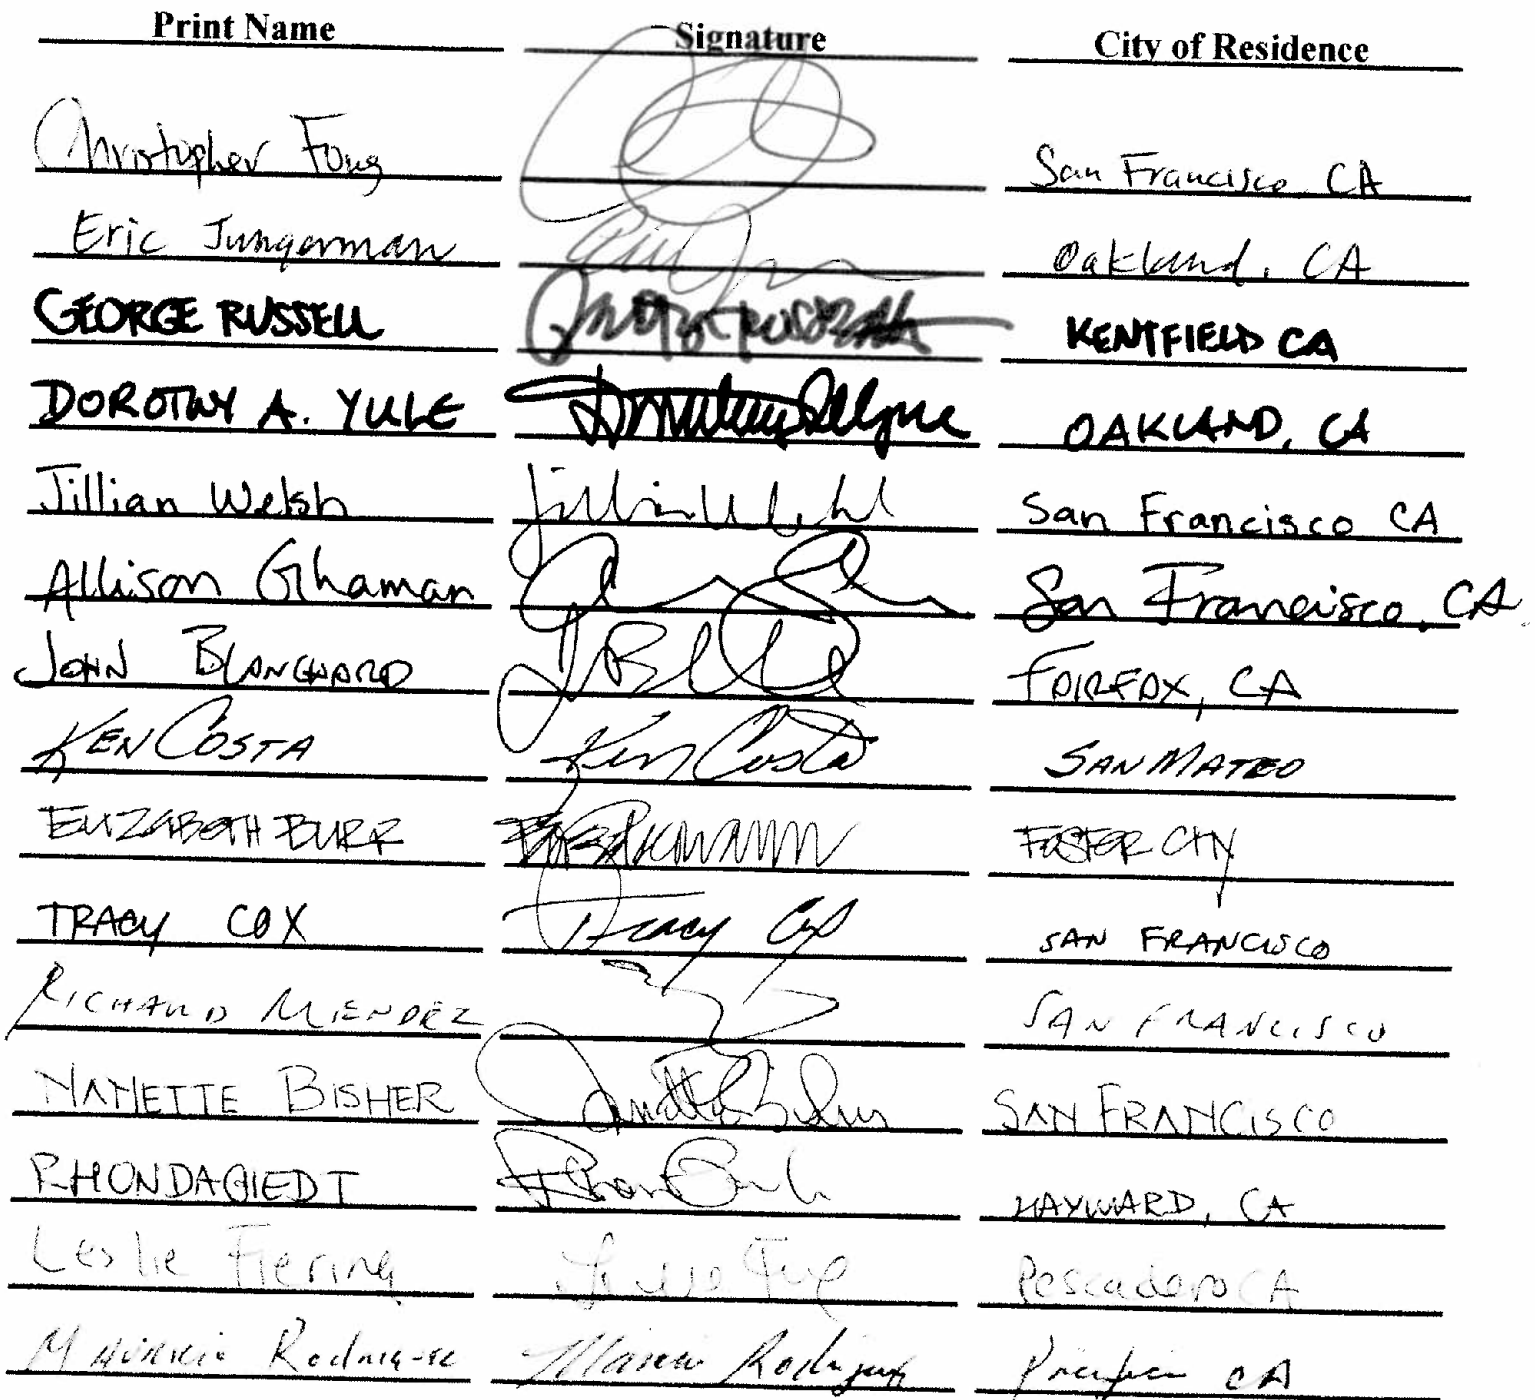 Print Name Signature City of Residence
Christopher Fong San Francisco, CA
Eric Jungerman Oakland, CA
GEORGE RUSSELL KENTFIELD CA
DOROTHY A. YULE OAKLAND, CA
Jillian Welsh Jillian Welsh San Francisco CA
Allison Ghaman San Francisco, CA
JOHN BLANCHARD FAIRFAX, CA
KEN COSTA Ken Costa SAN MATEO
ELIZABETH BURR FOSTER CITY
TRACY COX Tracy Cox SAN FRANCISCO
RICHARD MENDEZ SAN FRANCISCO
NANETTE BISHER SAN FRANCISCO
RHONDA GIEDT HAYWARD, CA
Leslie Fiering Pescadero CA
Mauricio Rodriguez Rodriguez Pacifica CA